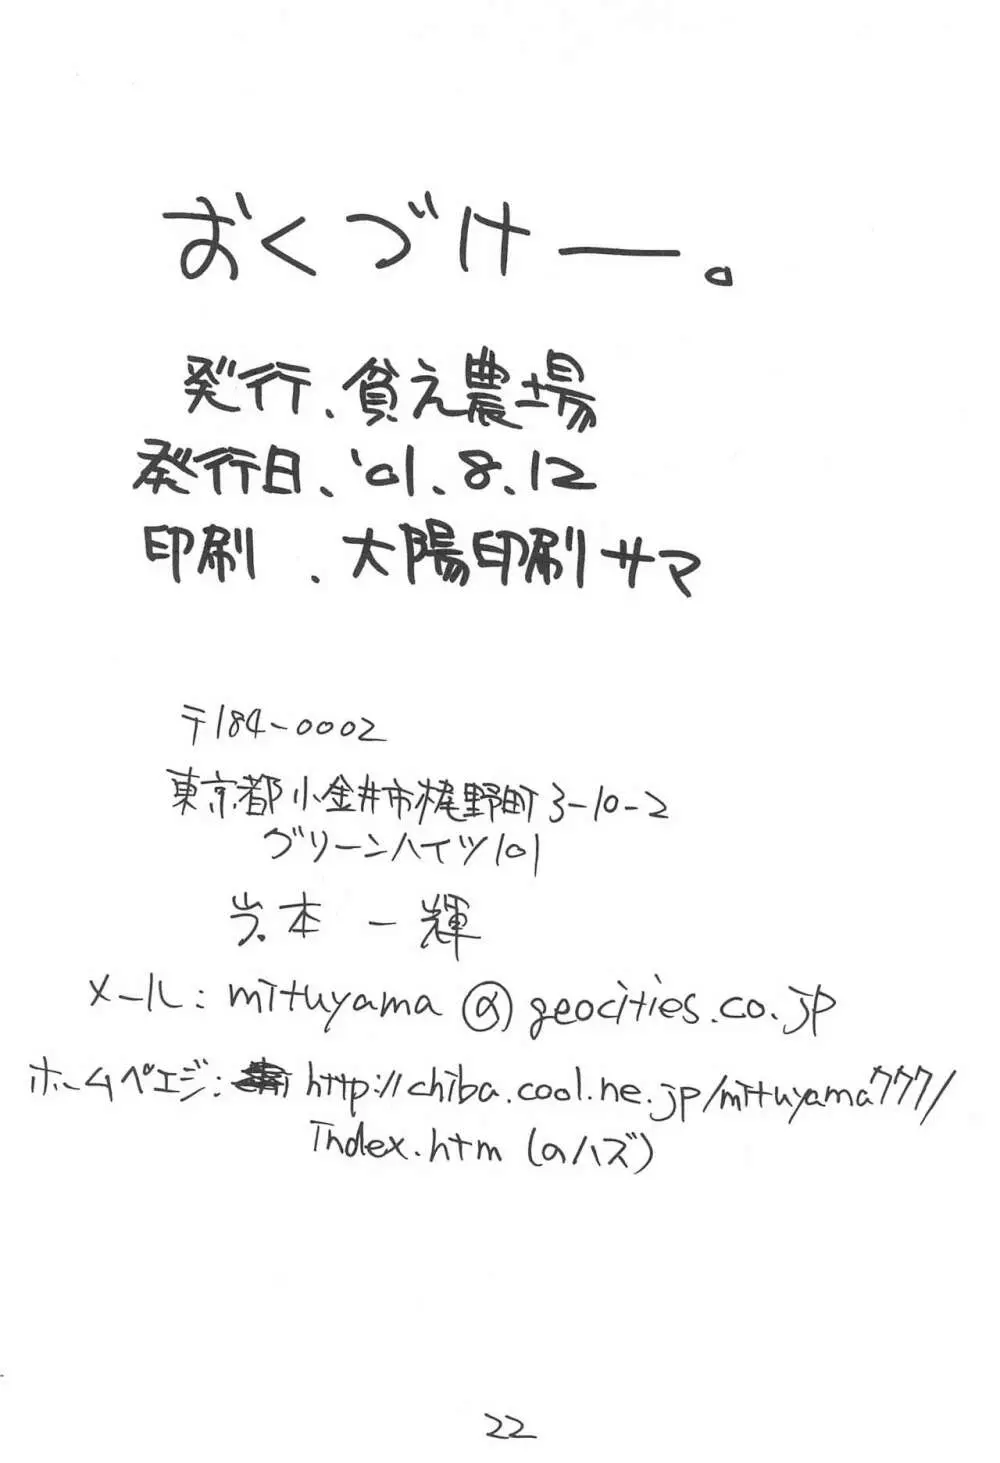 おくづけー。
発行、貧え農場
発行日、'01.8.12
印刷 . 大陽印刷サマ
〒184-0002
東京都小金井市梶野町3-10-2
グリーンハイツ101
岩本 一輝
メール: mituyama @ geocities.co.jp
ホームペエジ: http://chiba.cool.ne.jp/mituyama777/
Index.htm (のハズ)
22